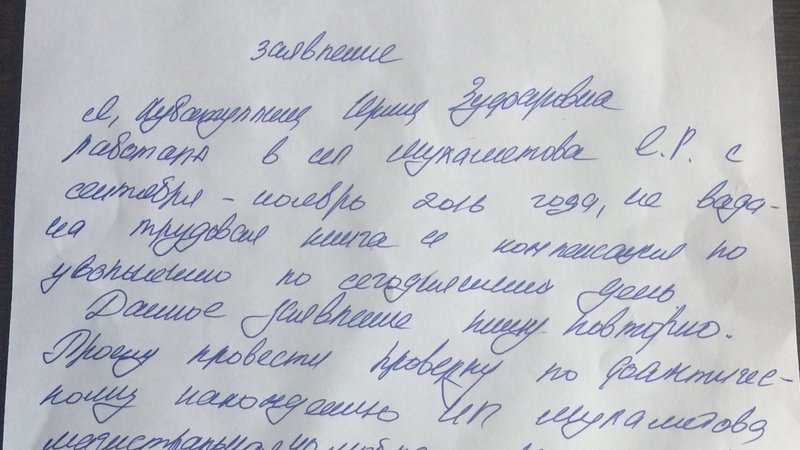 заявление
Я, Ирина Зуфаровна
работала в ип Мухаметова Е.Р. с
сентября - ноябрь 2016 года, не вада-
на трудовая книга и компенсация по
увольнению по сегодняшний день
Данное заявление пишу повторно.
Прошу провести проверку по фактичес-
кому нахождению ИП Мухаметова